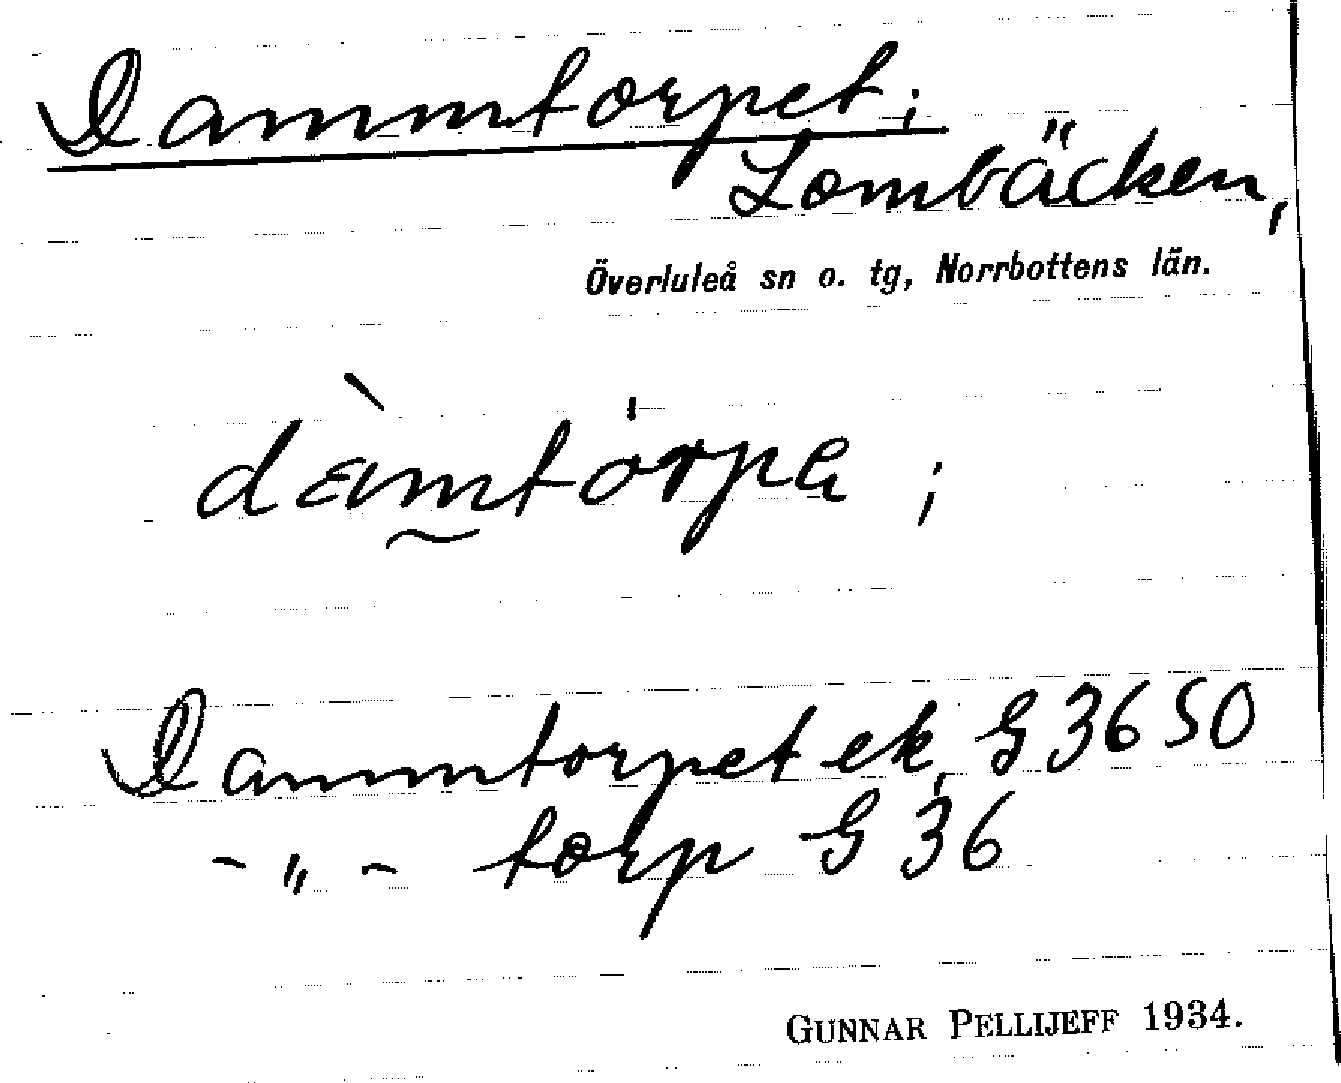 Dammtorpet;
Lombäcken,
Överluleå sn o. tg, Norrbottens län.
dàmtórpa ;
Dammtorpet ek, G 36 50
- „ - torp G 36
GUNNAR PELLIJEFF 1934.